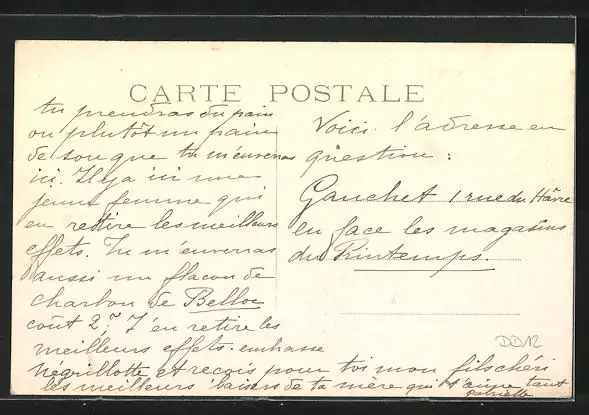 CARTE POSTALE
tu prendras du pain
ou plutôt un pain
de son que tu m'enverras
ici. Il y a ici une
jeune femme qui
en retire les meilleurs
effets. Tu m'enverras
aussi un flacon de
charbon de Belloc
coût 2,
J'en retire les
meilleurs effets. embrasse
Négrillotte et reçois pour toi mon fils chéri
les meilleurs baisers de ta mère qui t'aime tant
Voici l'adresse en
question :
Gauchet 1 rue du Hâvre
en face les magasins
du Printemps.
DD12